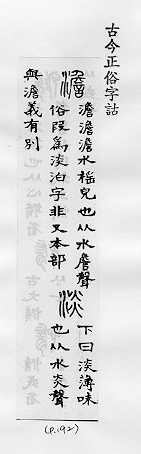 古今正俗字詁
澹 澹澹澹水榣皃也从水詹聲 淡 下曰淡薄味
俗叚爲淡泊字非又本部 也从水炎聲
與澹義有別
(p.192)